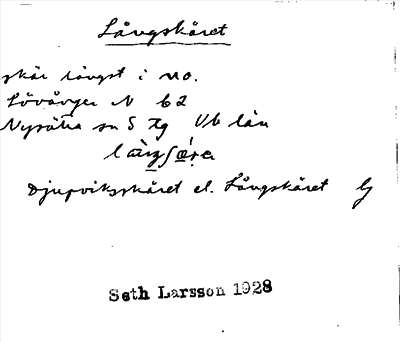 Långskäret
skär längst i no.
Lövånger N 62
Nysätra sn S tg Vb län
Djupviksskäret el. Långskäret
Seth Larsson 1928